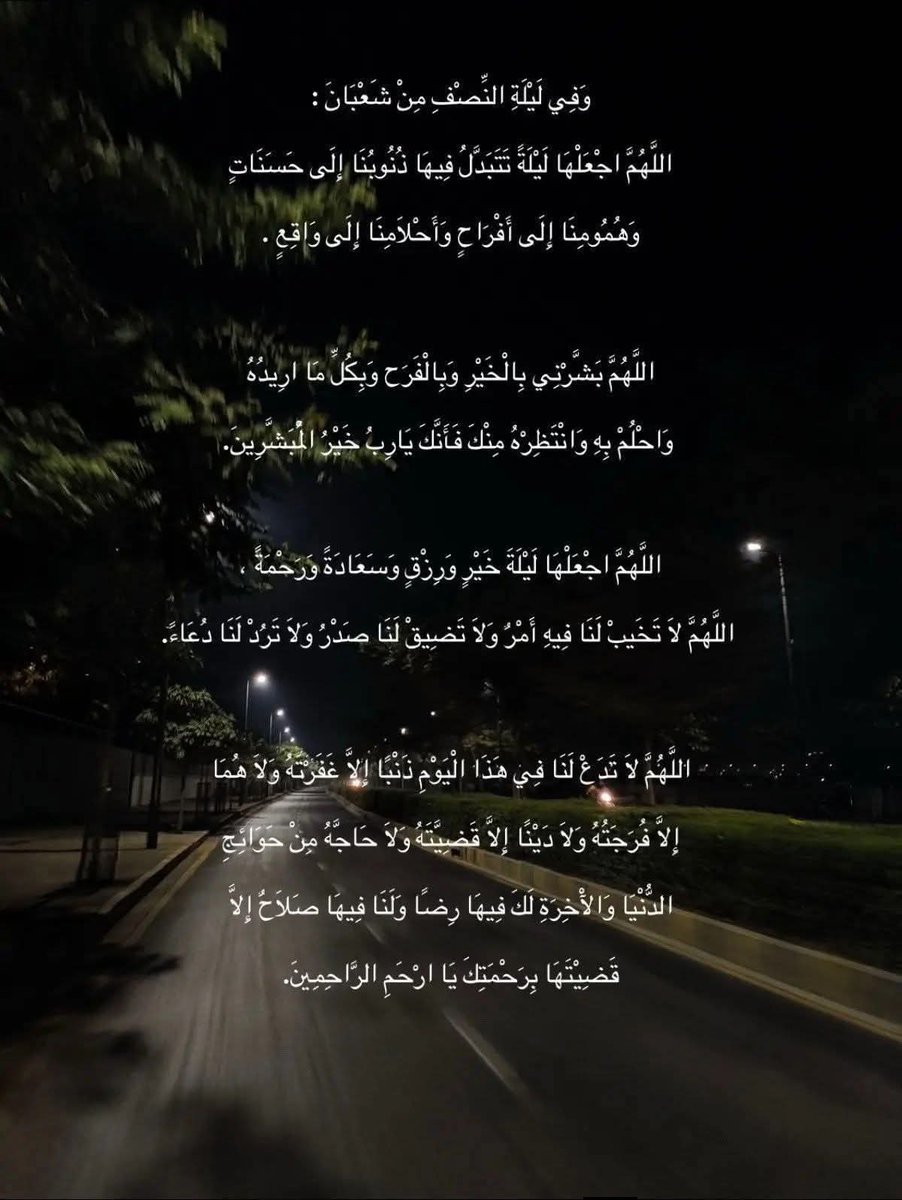 وَفِي لَيْلَةِ النِّصْفِ مِنْ شَعْبَانَ :
اللَّهُمَّ اجْعَلْهَا لَيْلَةً تَتَبَدَّلُ فِيهَا ذُنُوبُنَا إِلَى حَسَنَاتٍ
وَهُمُومِنَا إِلَى أَفْرَاحٍ وَأَحْلَامِنَا إِلَى وَاقِعٍ .
اللَّهُمَّ بَشَّرْنِي بِالْخَيْرِ وَبِالْفَرَح وَبِكُلِّ مَا ارِيدُهُ
وَاحْلُمْ بِهِ وَانْتَظِرْهُ مِنْكَ فَأَنَّكَ يَارِبُ خَيْرُ الْمُبَشَّرِينَ.
اللَّهُمَّ اجْعَلْهَا لَيْلَةَ خَيْرٍ وَرِزْقٍ وَسَعَادَةً وَرَحْمَةً ،
اللَّهُمَّ لَا تَخَيبْ لَنَا فِيهِ أَمْرٌ وَلَا تَضيقْ لَنَا صَدْرُ وَلَا تَرُدْ لَنَا دُعَاءً.
اللَّهُمَّ لَا تَدَعْ لَنَا فِي هَذَا الْيَوْمِ ذَنْبًا إِلاَّ غَفَرْتَهُ وَلَا هُمَا
إِلاَّ فُرَجَتُهُ وَلَا دَيْنًا إِلاَّ قَضِيَّتَهُ وَلَا حَاجَّهُ مِنْ حَوَائِجِ
الدُّنْيَا وَالْأَخِرَةِ لَكَ فِيهَا رِضًا وَلَنَا فِيهَا صَلَاحُ إِلاَّ
قَضِيْتَهَا بِرَحْمَتِكَ يَا ارْحَمِ الرَّاحِمِينَ.